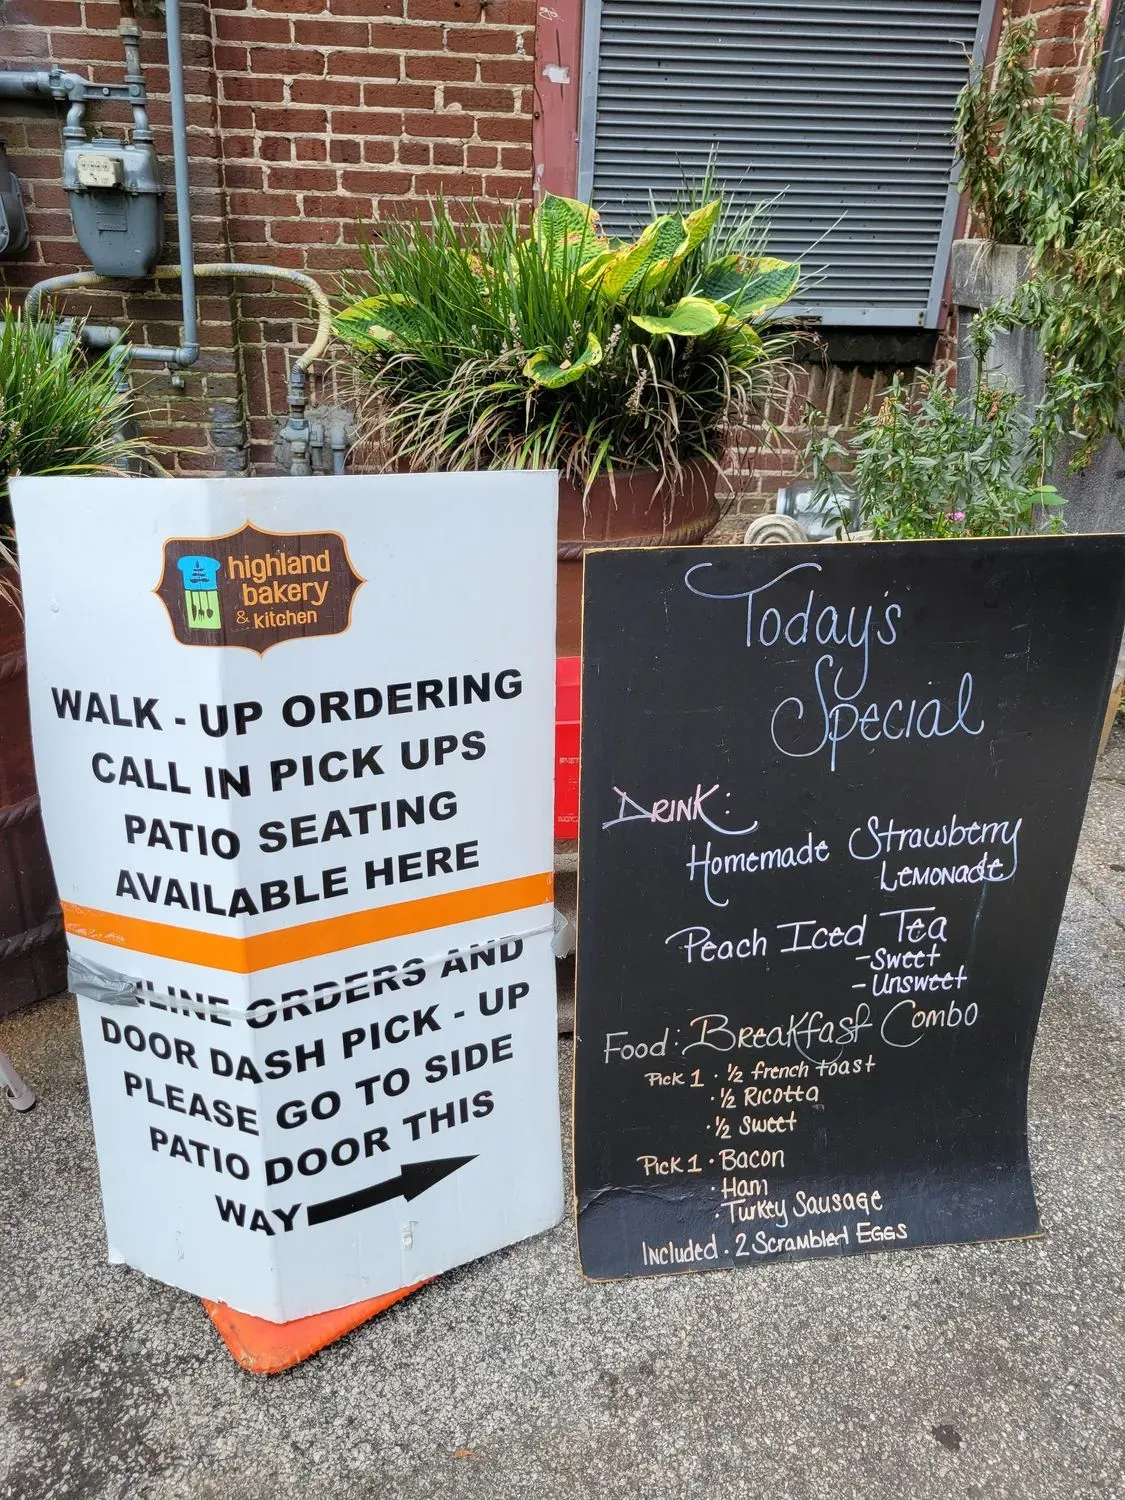 highland
bakery
& kitchen
WALK - UP ORDERING
CALL IN PICK UPS
PATIO SEATING
AVAILABLE HERE
ORDERS AND
DOOR DASH PICK - UP
PLEASE GO TO SIDE
PATIO DOOR THIS
WAY
Today's
Special
DRINK:
Homemade Strawberry
LEMONADE
Peach Iced Tea
- Sweet
- Unsweet
Food: Breakfast Combo
Pick 1 · 1/2 french toast
· 1/2 Ricotta
· 1/2 Sweet
Pick 1 · Bacon
· Ham
· Turkey Sausage
Included · 2 Scrambled EGGS